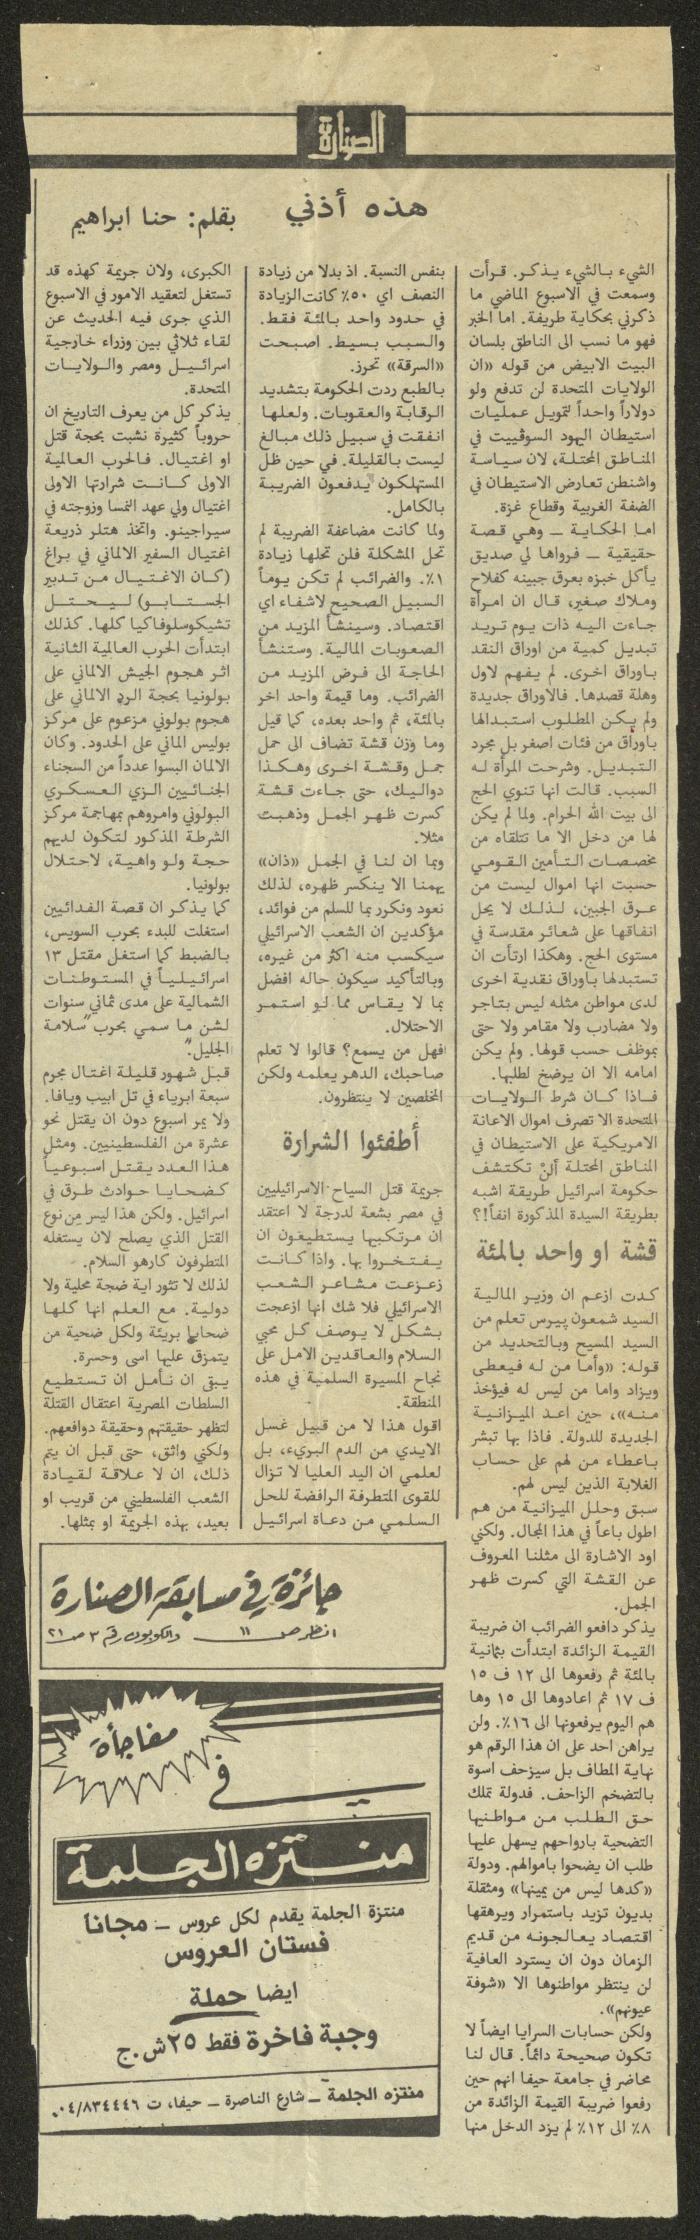 الصنارة
هذه أذني
بقلم: حنا ابراهيم
الشيء بالشيء يذكر. قرأت
وسمعت في الاسبوع الماضي ما
ذكرني بحكاية طريفة. اما الخبر
فهو ما نسب الى الناطق بلسان
البيت الابيض من قوله «ان
الولايات المتحدة لن تدفع ولو
دولاراً واحداً لتمويل عمليات
استيطان اليهود السوڤييت في
المناطق المحتلة، لان سياسة
واشنطن تعارض الاستيطان في
الضفة الغربية وقطاع غزة.
اما الحكاية – وهي قصة
حقيقية – فرواها لي صديق
يأكل خبزه بعرق جبينه كفلاح
وملاك صغير، قال ان امرأة
جاءت اليه ذات يوم تريد
تبديل كمية من اوراق النقد
باوراق اخرى. لم يفهم لاول
وهلة قصدها. فالاوراق جديدة
ولم يكن المطلوب استبدالها
باوراق من فئات اصغر بل مجرد
التبديل. وشرحت المرأة له
السبب. قالت انها تنوي الحج
الى بيت الله الحرام. ولما لم يكن
لها من دخل الا ما تتلقاه من
مخصصات التأمين القومي
حسبت انها اموال ليست من
عرق الجبين، لذلك لا يحل
انفاقها على شعائر مقدسة في
مستوى الحج. وهكذا ارتأت ان
تستبدلها باوراق نقدية اخرى
لدى مواطن مثله ليس بتاجر
ولا مضارب ولا مقامر ولا حتى
بموظف حسب قولها. ولم يكن
امامه الا ان يرضخ لطلبها.
فاذا كان شرط الولايات
المتحدة الا تصرف اموال الاعانة
الامريكية على الاستيطان في
المناطق المحتلة ألن تكتشف
حكومة اسرائيل طريقة اشبه
بطريقة السيدة المذكورة انفاً!؟
قشة او واحد بالمئة
كدت ازعم ان وزير المالية
السيد شمعون پيرس تعلم من
السيد المسيح وبالتحديد من
قوله: «وأما من له فيعطى
ويزاد واما من ليس له فيؤخذ
منه»، حين اعد الميزانية
الجديدة للدولة. فاذا بها تبشر
باعطاء من لهم على حساب
الغلابة الذين ليس لهم.
سبق وحلل الميزانية من هم
اطول باعاً في هذا المجال. ولكني
اود الاشارة الى مثلنا المعروف
عن القشة التي كسرت ظهر
الجمل.
يذكر دافعو الضرائب ان ضريبة
القيمة الزائدة ابتدأت بثمانية
بالمئة ثم رفعوها الى ١٢ ف ١٥
ف ١٧ ثم اعادوها الى ١٥ وها
هم اليوم يرفعونها الى ١٦٪. ولن
يراهن احد على ان هذا الرقم هو
نهاية المطاف بل سيزحف اسوة
بالتضخم الزاحف. فدولة تملك
حق الطلب من مواطنيها
التضحية بارواحهم يسهل عليها
طلب ان يضحوا باموالهم. ودولة
«كدها ليس من يمينها» ومثقلة
بديون تزيد باستمرار ويرهقها
اقتصاد يعالجونه من قديم
الزمان دون ان يسترد العافية
لن ينتظر مواطنوها الا «شوفة
عيونهم».
ولكن حسابات السرايا ايضاً لا
تكون صحيحة دائماً. قال لنا
محاضر في جامعة حيفا انهم حين
رفعوا ضريبة القيمة الزائدة من
٨٪ الى ١٢٪ لم يزد الدخل منها
بنفس النسبة. اذ بدلا من زيادة
النصف اي ٥٠٪ كانت الزيادة
في حدود واحد بالمئة فقط.
والسبب بسيط. اصبحت
«السرقة» تحرز.
بالطبع ردت الحكومة بتشديد
الرقابة والعقوبات. ولعلها
انفقت في سبيل ذلك مبالغ
ليست بالقليلة. في حين ظل
المستهلكون يدفعون الضريبة
بالكامل.
ولما كانت مضاعفة الضريبة لم
تحل المشكلة فلن تحلها زيادة
١٪. والضرائب لم تكن يوماً
السبيل الصحيح لاشفاء اي
اقتصاد. وسينشأ المزيد من
الصعوبات المالية. وستنشأ
الحاجة الى فرض المزيد من
الضرائب. وما قيمة واحد اخر
بالمئة، ثم واحد بعده، كما قيل
وما وزن قشة تضاف الى حمل
جمل وقشة اخرى وهكذا
دواليك، حتى جاءت قشة
كسرت ظهر الجمل وذهبت
مثلا.
وبما ان لنا في الجمل «ذان»
يهمنا الا ينكسر ظهره، لذلك
نعود ونكرر بما للسلم من فوائد،
مؤكدين ان الشعب الاسرائيلي
سيكسب منه اكثر من غيره،
وبالتأكيد سيكون حاله افضل
بما لا يقاس مما لو استمر
الاحتلال.
افهل من يسمع؟ قالوا لا تعلم
صاحبك، الدهر يعلمه ولكن
المخلصين لا ينتظرون.
أطفئوا الشرارة
جريمة قتل السياح الاسرائيليين
في مصر بشعة لدرجة لا اعتقد
ان مرتكبها يستطيعون ان
يفتخروا بها. واذا كانت
زعزعت مشاعر الشعب
الاسرائيلي فلا شك انها ازعجت
بشكل لا يوصف كل محبي
السلام والعاقدين الامل على
نجاح المسيرة السلمية في هذه
المنطقة.
اقول هذا لا من قبيل غسل
الايدي من الدم البريء، بل
لعلمي ان اليد العليا لا تزال
للقوى المتطرفة الرافضة للحل
السلمي من دعاة اسرائيل
الكبرى، ولان جريمة كهذه قد
تستغل لتعقيد الامور في الاسبوع
الذي جرى فيه الحديث عن
لقاء ثلاثي بين وزراء خارجية
اسرائيل ومصر والولايات
المتحدة.
يذكر كل من يعرف التاريخ ان
حروباً كثيرة نشبت بحجة قتل
او اغتيال. فالحرب العالمية
الاولى كانت شرارتها الاولى
اغتيال ولي عهد النمسا وزوجته في
سيراجينو. واتخذ هتلر ذريعة
اغتيال السفير الالماني في براغ
(كان الاغتيال من تدبير
الجستابو) ليحتل
تشيكوسلوفاكيا كلها. كذلك
ابتدأت الحرب العالمية الثانية
اثر هجوم الجيش الالماني على
بولونيا بحجة الرد الالماني على
هجوم بولوني مزعوم على مركز
بوليس الماني على الحدود. وكان
الالمان البسوا عدداً من السجناء
الجنائيين الزي العسكري
البولوني وامروهم بمهاجمة مركز
الشرطة المذكور لتكون لديهم
حجة ولو واهية، لاحتلال
بولونيا.
كما يذكر ان قصة الفدائيين
استغلت للبدء بحرب السويس،
بالضبط كما استغل مقتل ١٣
اسرائيلياً في المستوطنات
الشمالية على مدى ثماني سنوات
لشن ما سمي بحرب "سلامة
الجليل".
قبل شهور قليلة اغتال مجرم
سبعة ابرياء في تل ابيب ويافا.
ولا يمر اسبوع دون ان يقتل نحو
عشرة من الفلسطينيين. ومثل
هذا العدد يقتل اسبوعياً
كضحايا حوادث طرق في
اسرائيل. ولكن هذا ليس من نوع
القتل الذي يصلح لان يستغله
المتطرفون كارهو السلام.
لذلك لا تثور اية ضجة محلية ولا
دولية. مع العلم انها كلها
ضحايا بريئة ولكل ضحية من
يتمزق عليها اسى وحسرة.
يبقى ان نأمل ان تستطيع
السلطات المصرية اعتقال القتلة
لتظهر حقيقتهم وحقيقة دوافعهم.
ولكني واثق، حتى قبل ان يتم
ذلك، ان لا علاقة لقيادة
الشعب الفلسطيني من قريب او
بعيد، بهذه الجريمة او بمثلها.
جائزة في مسابقة الصنارة
انظر ص ١١ والكوبون رقم ٣ ص ٢١
مفاجأة
في
منتزه الجلمة
منتزة الجلمة يقدم لكل عروس – مجاناً
فستان العروس
ايضا حملة
وجبة فاخرة فقط ٢٥ ش.ج
منتزه الجلمة – شارع الناصرة – حيفا، ت ٠٤/٨٣٤٤٤٦.